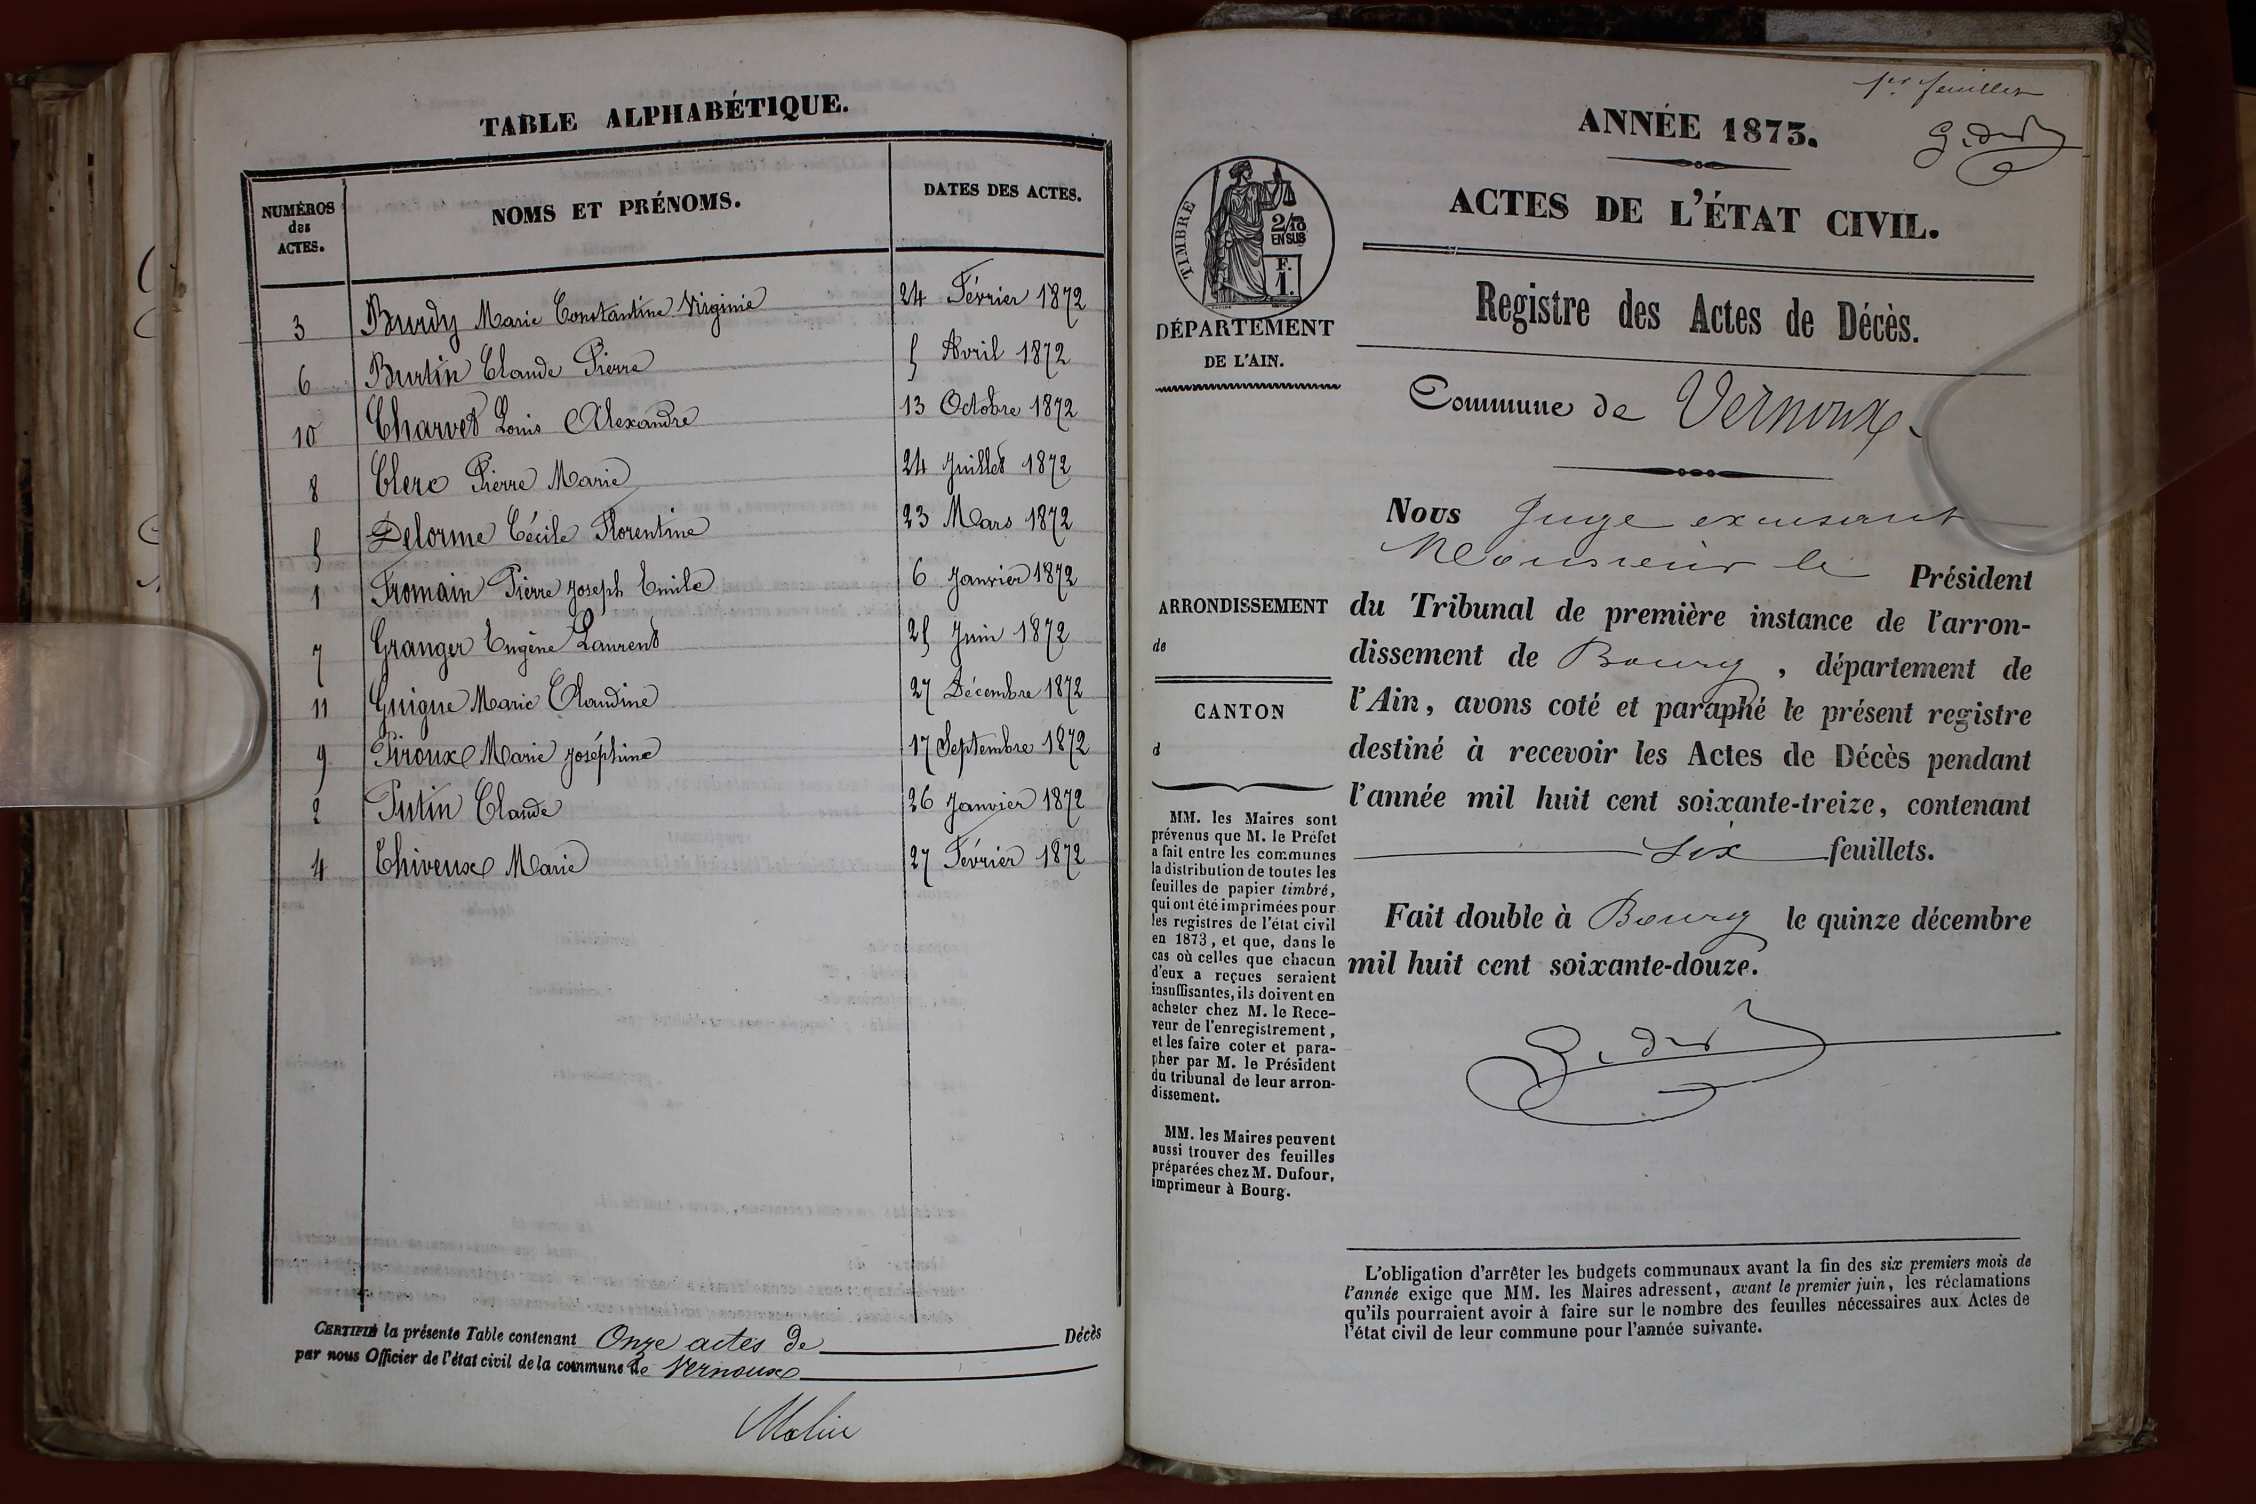 TABLE ALPHABÉTIQUE.
NUMÉROS
des
ACTES.
NOMS ET PRÉNOMS.
DATES DES ACTES.
3 Burdy Marie Constantine Virginie 24 Février 1872
6 Burtin Claude Pierre 5 Avril 1872
10 Charvet Louis Alexandre 13 Octobre 1872
8 Clerc Pierre Marie 24 Juillet 1872
5 Delorme Cécile Florentine 23 Mars 1872
1 Fromain Pierre Joseph Emile 6 Janvier 1872
7 Granger Eugène Laurent 25 Juin 1872
11 Guigue Marie Claudine 27 Décembre 1872
9 Piroux Marie Joséphine 17 Septembre 1872
2 Putin Claude 26 Janvier 1872
4 Thiveux Marie 27 Février 1872
CERTIFIÉ la présente Table contenant Onze actes de Décès
par nous Officier de l'état civil de la commune de Vernoux
1er feuillet
ANNÉE 1873.
ACTES DE L'ÉTAT CIVIL.
TIMBRE
2/10
EN SUS
F.
1.
DÉPARTEMENT
DE L'AIN.
Registre des Actes de Décès.
Commune de Vernoux.
Nous Juge excusant
Monsieur le Président
du Tribunal de première instance de l'arron-
dissement de Bourg, département de
l'Ain, avons coté et paraphé le présent registre
destiné à recevoir les Actes de Décès pendant
l'année mil huit cent soixante-treize, contenant
six feuillets.
Fait double à Bourg le quinze décembre
mil huit cent soixante-douze.
ARRONDISSEMENT
de
CANTON
d
MM. les Maires sont
prévenus que M. le Préfet
a fait entre les communes
la distribution de toutes les
feuilles de papier timbré,
qui ont été imprimées pour
les registres de l'état civil
en 1873, et que, dans le
cas où celles que chacun
d'eux a reçues seraient
insuffisantes, ils doivent en
acheter chez M. le Rece-
veur de l'enregistrement,
et les faire coter et para-
pher par M. le Président
du tribunal de leur arron-
dissement.
MM. les Maires peuvent
aussi trouver des feuilles
préparées chez M. Dufour,
imprimeur à Bourg.
L'obligation d'arrêter les budgets communaux avant la fin des six premiers mois de
l'année exige que MM. les Maires adressent, avant le premier juin, les réclamations
qu'ils pourraient avoir à faire sur le nombre des feuilles nécessaires aux Actes de
l'état civil de leur commune pour l'année suivante.